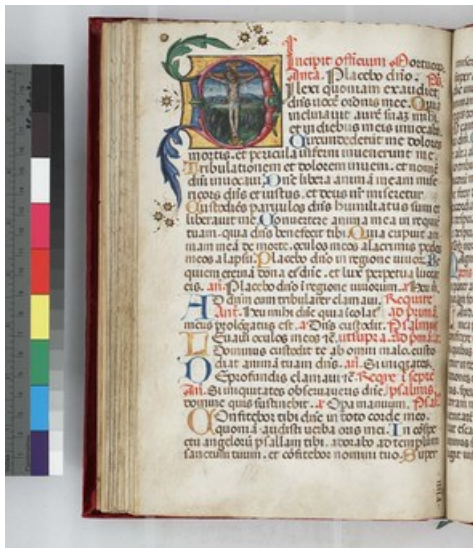 Incipit officium Mortuorum
Anta. Placebo dño. Ps.
Dilexi quoniam exaudiet
dñs uocē orōnis mee. Quia
inclinauit aurē suaȝ mihi
et in diebus meis inuocabo.
Circundederūt me dolores
mortis. et pericula inferni inuenerunt me.
Tribulationem et dolorem inueni. et nomē
dñi inuocaui. O dñe libera animā meam mise
ricors dñs et iustus. et deus nr̄ miseretur.
Custodiēs paruulos dñs humiliatus sum et
liberauit me. Conuertere anima mea in requiē
tuam. quia dñs benefecit tibi. Quia eripuit ani
mam meā de morte. oculos meos a lacrimis pedes
meos a lapsu. Placebo dño in regione uiuoȝ. Re
quiem eternā dona eis dñe. et lux perpetua luceat
eis. añ. Placebo dño ī regione uiuorum.
Ad dñm cum tribularer clamaui. Require
Ant. Heu mihi dñe quia īcolat' ad primā
meus prolōgatus est. Dñs custodit. Psalmus
Leuaui oculos meos ⁊c. ut supra. ad primā.
Dominus custodit te ab omni malo. custo
diat animā tuam dñs. añ. Si iniquitates.
De profundis clamaui ⁊c. Reqre ī septē
Añ. Si iniquitates obseruaueris dñe. psalmus
domine quis sustinebit. Opa manuum. Psal.
Confitebor tibi dñe in toto corde meo.
quoniā audisti uerba oris mei. In cōspe
ctu angelorū psallam tibi. adorabo ad templum
sanctum tuum. et cōfitebor nomini tuo. Super